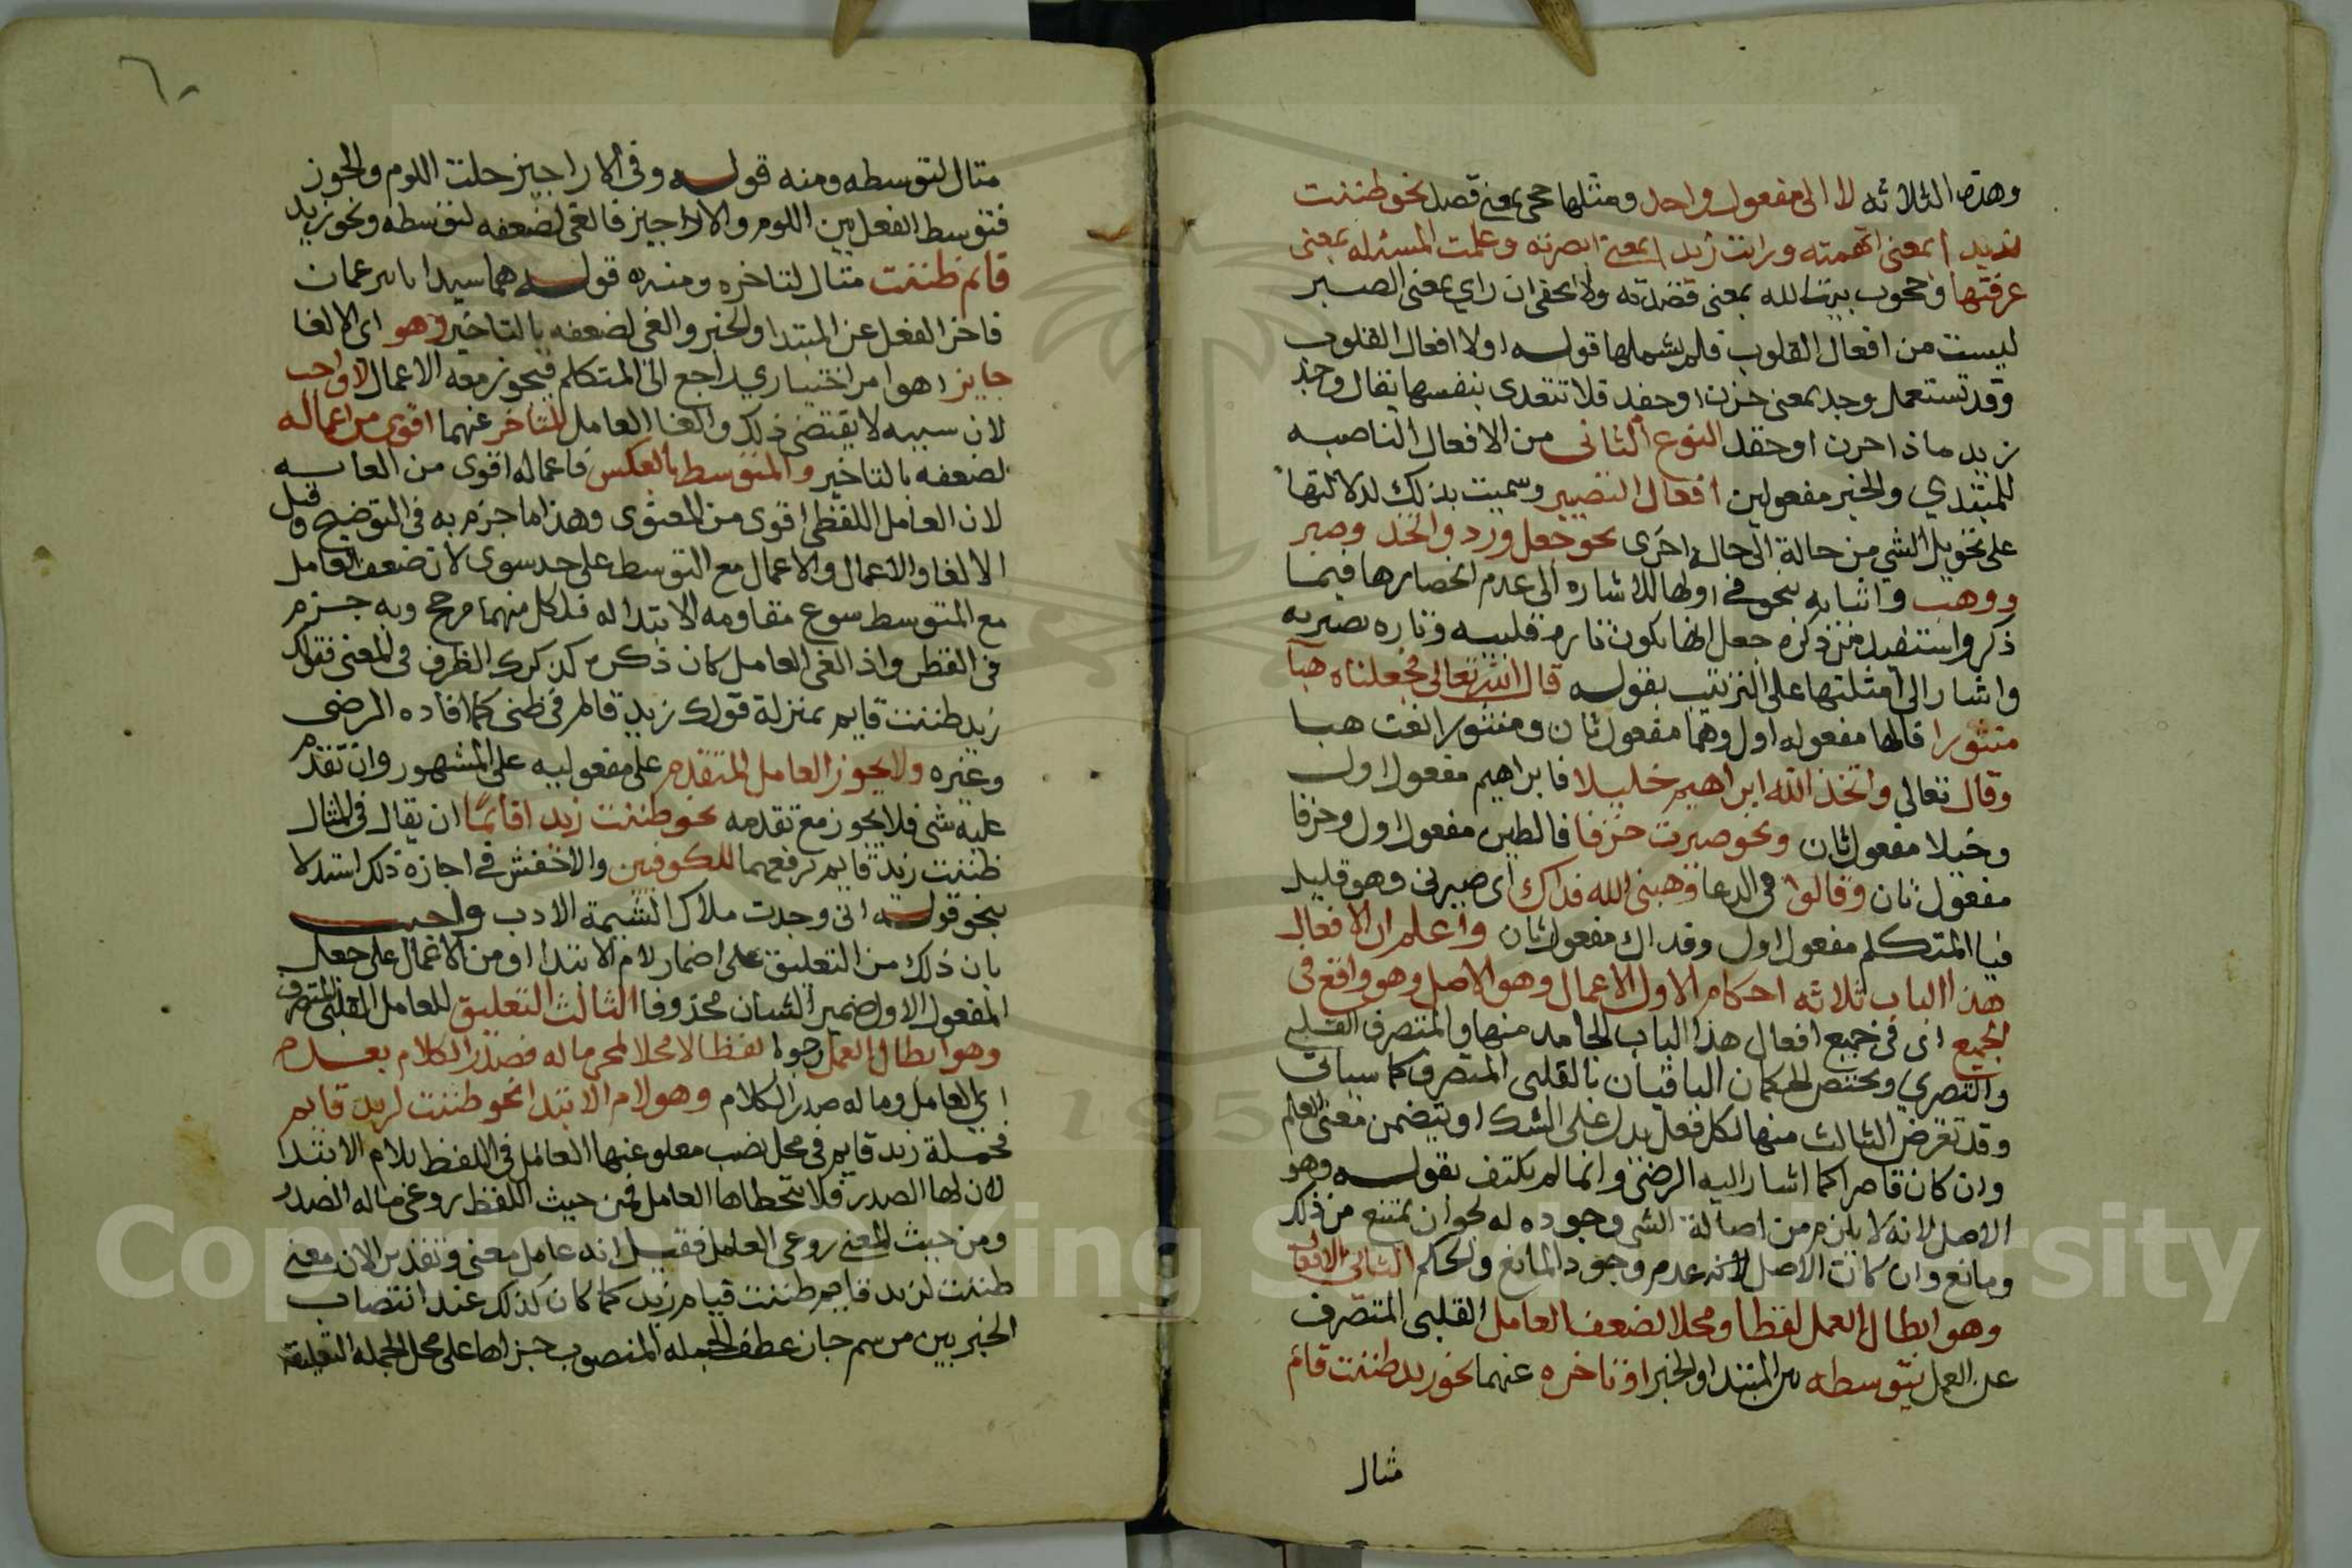 وهذه الثلاثه لا الى مفعول واحد ومثلها حجى بمعنى قصد نحو ظننت
زيد ا بمعنى اتهمته ورايت زيد ا بمعنى ابصرته وعلمت المسئله بمعنى
عرفتها وحجوت بيت الله بمعنى قصدته ولا يخفى ان راي بمعنى البصر
ليست من افعال القلوب فلم يشملها قوله اولا افعال القلوب
وقد تستعمل وجد بمعنى حزن او حقد فلا تتعدى بنفسها يقال وجد
زيد ماذا حزن او حقد النوع الثانى من الافعال الناصبه
للمبتدي والخبر مفعولين افعال التصيير وسميت بذلك لدلالتها
على تحويل الشي من حالة الى حالة اخرى نحو جعل ورد واتخذ وصير
ووهب واتيانه بنحو في اولها للاشاره الى عدم انحصارها فيما
ذكر واستفيد من ذكره جعل انها تكون تارة قلبيه وتاره تصيريه
واشار الى امثلتها على الترتيب بقوله قال الله تعالى فجعلناه هبا
منثورا فالها مفعوله اول وهبا مفعول ثان ومنثورا نعت هبا
وقال تعالى واتخذ الله ابراهيم خليلا فابراهيم مفعول اول
وخيلا مفعول ثان ونحو صيرت خزفا فالطين مفعول اول وخزفا
مفعول ثان وقالوا في الدعا وهبنى الله فداك اى صيرنى وهو قليل
فيا المتكلم مفعول اول وفداك مفعول ثان واعلم ان الافعال
هذا الباب ثلاثه احكام الاول الاعمال وهو الاصل وهو واقع فى
الجميع اى فى جميع افعال هذا الباب الجامد منها والمتصرف القلبي
والتصري ويختص الحكمان الباقيان بالقلبى المتصرف كما سياتى
وقد تعرض الثالث منها لكل فعل يدل على الشك او يتضمن معنى العلم
وان كان قاصرا كما اشار اليه الرضى وانما لم يكتف بقوله وهو
الاصل لانه لا يلزم من اصالة الشى وجوده له لجوان يمتنع من ذلك
ومانع وان كانت الاصل لانه عدم وجود المانع والحكم الثانى الالغا
وهو ابطال العمل لفظا ومحلا لضعف العامل القلبى المتصرف
عن العمل بتوسطه بين المبتدا والخبر او تاخره عنهما نحو زيد ظننت قائم
مثال
٦٠
مثال لتوسطه ومنه قوله وفى الاراجيز خلت اللوم والخور
فتوسط الفعل بين اللوم والاراجيز فالغى لضعفه لتوسطه ونحو زيد
قايم ظننت مثال لتاخره ومنه قوله هما سيدانا يزعمان
فاخر الفعل عن المبتدا والخبر والغى لضعفه بالتاخير وهو اى الالغا
جايز اهو امر اختياري راجع الى المتكلم فيجوز معه الاعمال لا واجب
لان سببه لا يقتضى ذلك والغا العامل المتاخر عنهما اقوى من اعماله
لضعفه بالتاخير والمتوسط بالعكس فاعماله اقوى من الغايه
لان العامل اللفظى اقوى من المعنوى وهذا ما جزم به فى التوضيح وقيل
الالغا والاعمال والاعمال مع التوسط على حد سوى لان ضعف العامل
مع المتوسط سوع مقاومه الابتدا له فلكل منهما مرجح وبه جزم
فى القطر واذ الغى العامل كان ذكره كذكرك الظرف فى المعنى فقولك
زيد ظننت قايم بمنزلة قولك زيد قائم فى ظنى كما افاده الرضى
وغيره ولا يجوز العامل المتقدم على مفعوليه على المشهور وان تقدم
عليه شى فلا يجوز مع تقدمه نحو ظننت زيد اقائما ان يقال فى المثال
ظننت زيد قايم برفعهما للكوفين والاخفش في اجازة ذلك استدلا
بنحو قوله انى وجدت ملاك الشيمة الادب واجيب
بان ذلك من التعليق على اضمار لام الابتدا او من الاعمال على جعل
المفعول الاول ضمير الشان محذوفا الثالث التعليق للعامل القلبى المتصرف
وهو ابطال العمل وجوبا لفظا لا محلا لمجئ ماله صدر الكلام بعده
اي العامل وماله صدر الكلام وهو لام الابتدا نحو ظننت لزيد قايم
فجملة زيد قايم فى محل نصب معلوعنها العامل فى اللفظ بلام الابتدا
لان لها الصدر فلا يتخطاها العامل فمن حيث اللفظ روعى ماله الصدر
ومن حيث المعنى روعى العامل فقيل انه عامل معنى وتقديرا لان معنى
ظننت لزيد قايم ظننت قيام زيد كما كان كذلك عند انتصاب
الخبريين من سم جاز عطف الجمله المنصوب جزاها على محل الجمله التعليقه